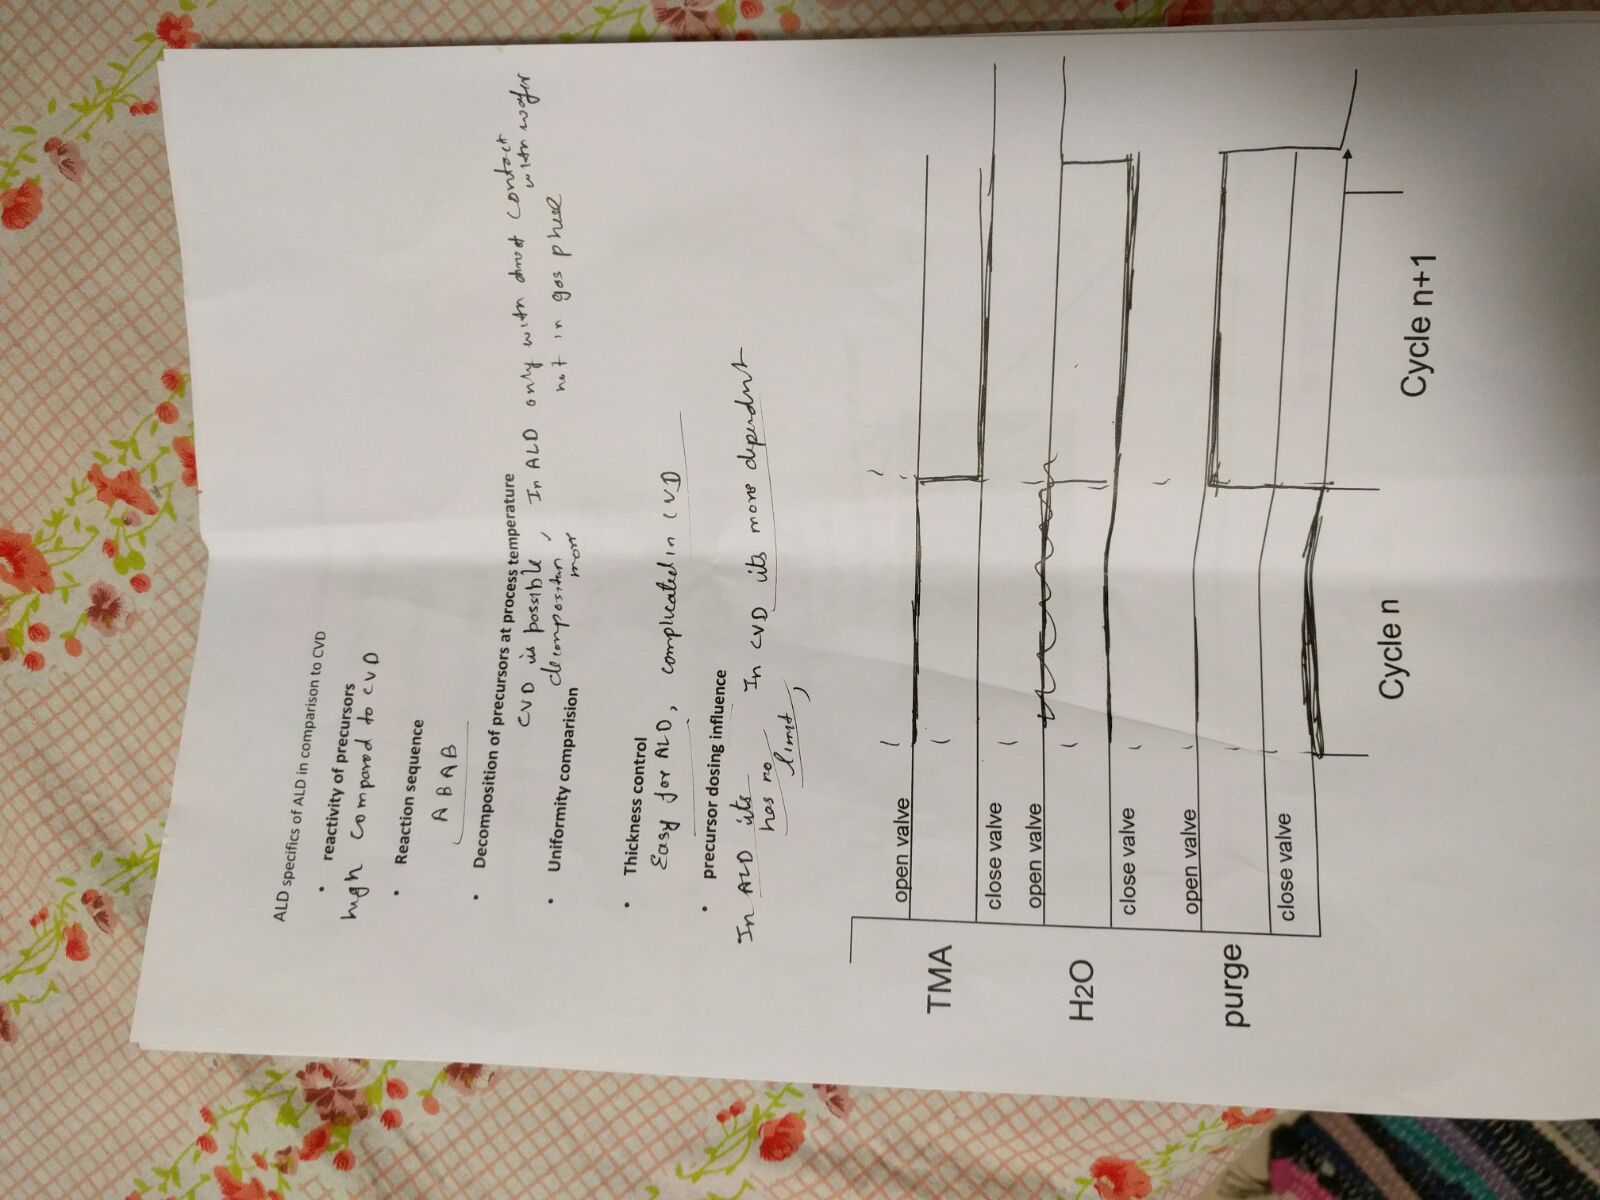 ALD specifics of ALD in comparison to CVD
• reactivity of precursors
high compared to CVD
• Reaction sequence
A B A B
• Decomposition of precursors at process temperature
CVD is possible decomposition more, In ALD only with contact with wafer
not in gas phase
• Uniformity comparision
• Thickness control
Easy for ALD, complicated in CVD
• precursor dosing influence
In ALD its has no limit, In CVD its more dependent
open valve
TMA
close valve
open valve
H2O
close valve
open valve
purge
close valve
Cycle n
Cycle n+1